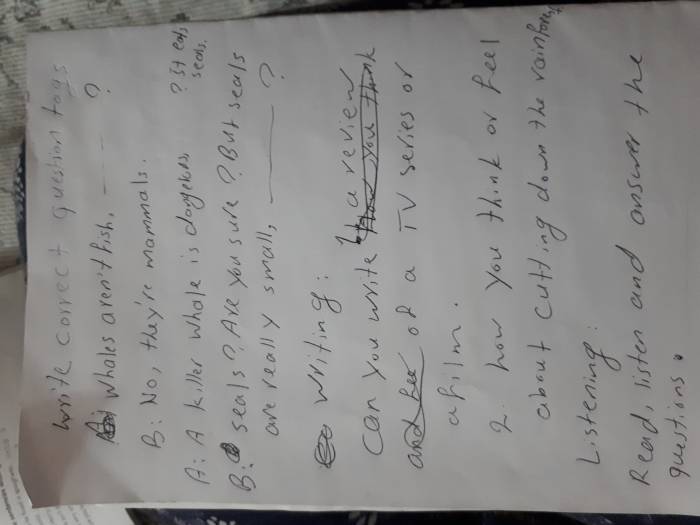 write correct question tags
A: Whales aren't fish, ?
B: No, they're mammals.
A: A killer whale is dangerous ? It eats
seals.
B: seals? Are you sure? But seals
are really small, ?
writing:
Can you write a review
of a TV series or
a film.
2. how you think or feel
about cutting down the rainforest
Listening:
Read, listen and answer the
questions.